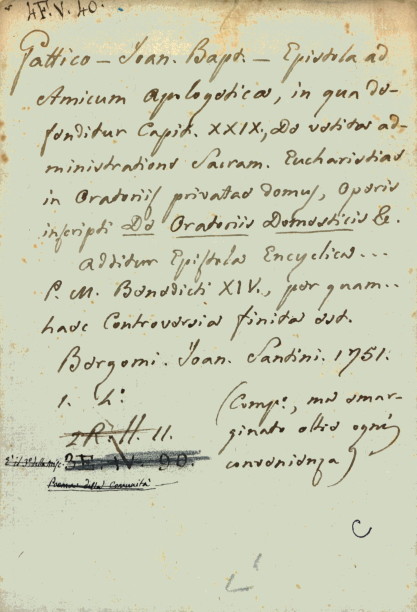 4F.V.40.
Gattico - Joan. Bapt. - Epistola ad
Amicum Apologetica, in qua de-
fenditur Capit. XXIX, De vetita ad-
ministratione Sacram. Eucharistiae
in Oratoriis privatae domus, Operis
inscripti De Oratoriis Domesticis &c.
Additur Epistola Encyclica...
P. M. Benedicti XIV., per quam..
haec Controversia finita est.
Bergomi. Joan. Santini. 1751.
1. 4º.
(Compº, ma smar-
2R.H.11.
ginato oltre ogni
3E.IV.90.
convenienza)
Poema della Comunità
C